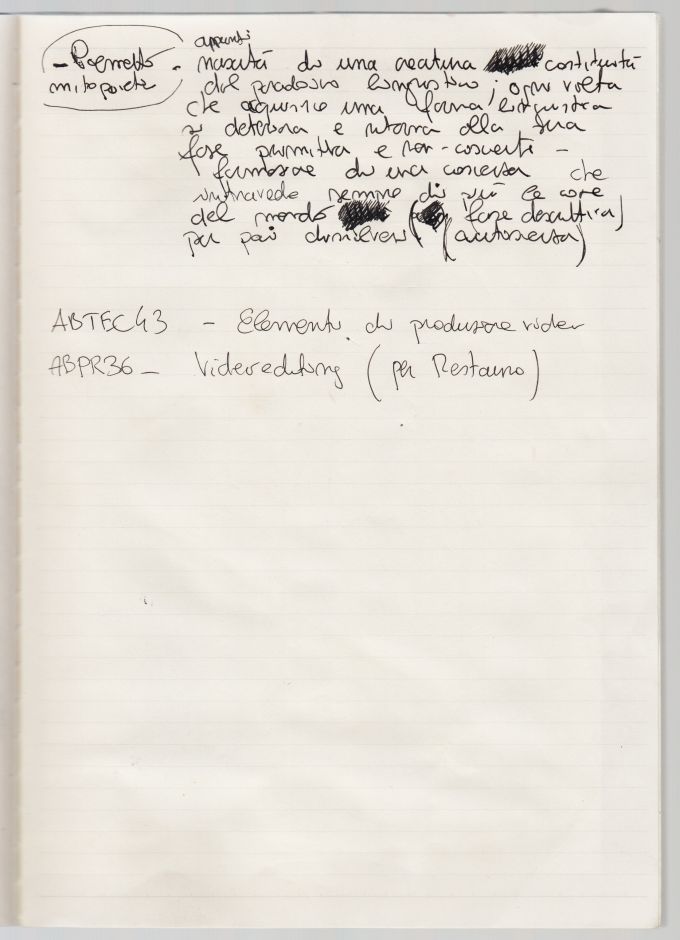 appunti
- Poemetto - nascita di una creatura costituita
mitopoietico dal paradosso linguistico; ogni volta
che acquisisce una forma linguistica
si deteriora e ritorna alla sua
fase primitiva e non-cosciente -
formazione di una coscienza che
intravede sempre di più le cose
del mondo ( fase descrittiva)
per poi dissolversi. (autocoscienza)
ABTEC43 - Elementi di produzione video
ABPR36 - Videoediting (per Restauro)